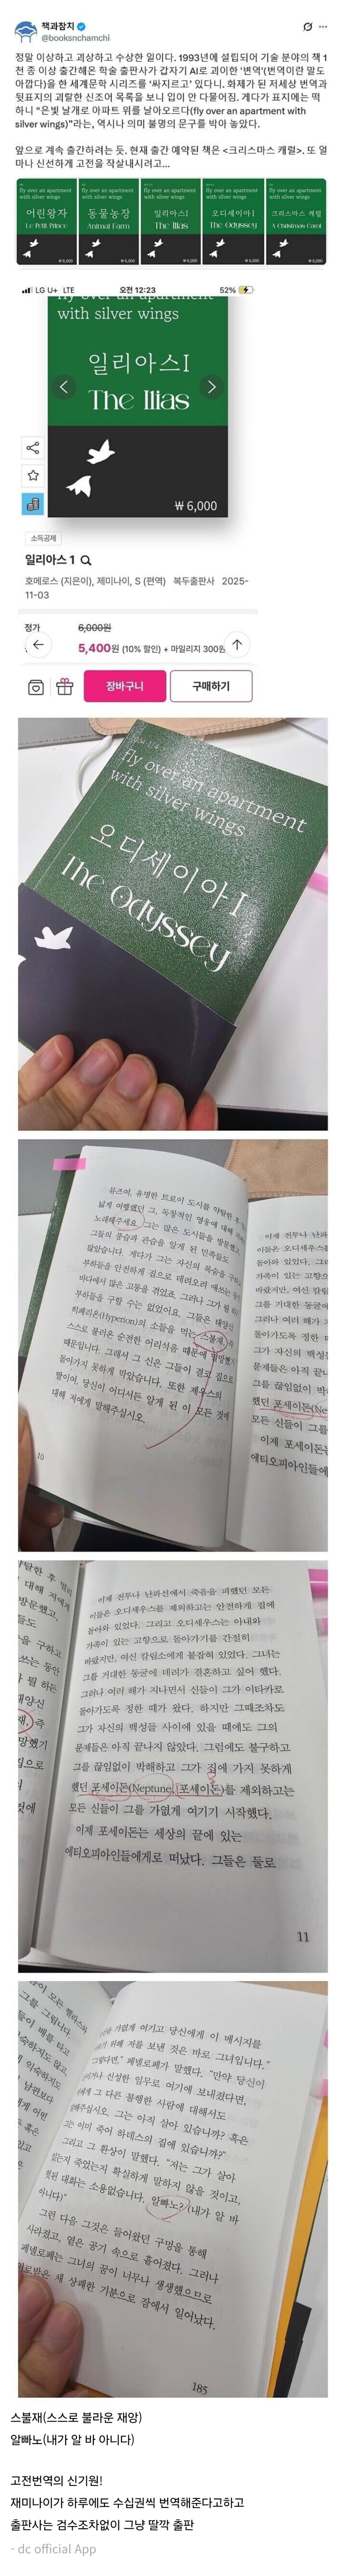 책과참치
@booksnchamchi
정말 이상하고 괴상하고 수상한 일이다. 1993년에 설립되어 기술 분야의 책 1
천 종 이상 출간해온 학술 출판사가 갑자기 AI로 괴이한 '변역'(번역이란 말도
아깝다)을 한 세계문학 시리즈를 '싸지르고' 있다니. 화제가 된 저세상 번역과
뒷표지의 괴랄한 신조어 목록을 보니 입이 안 다물어짐. 게다가 표지에는 떡
하니 “은빛 날개로 아파트 위를 날아오르다(fly over an apartment with
silver wings)”라는, 역시나 의미 불명의 문구를 박아 놓았다.
앞으로 계속 출간하려는 듯. 현재 출간 예약된 책은 <크리스마스 캐럴>. 또 얼
마나 신선하게 고전을 작살내시려고...
fly over an apartment
with silver wings
어린왕자
Le Petit Prince
₩6,000
fly over an apartment
with silver wings
동물농장
Animal Farm
₩6,000
fly over an apartment
with silver wings
일리아스 I
The Ilias
₩6,000
fly over an apartment
with silver wings
오디세이아 I
The Odyssey
₩6,000
fly over an apartment
with silver wings
크리스마스 캐럴
A Christmas Carol
₩6,000
LG U+ LTE 오전 12:23 52%
fly over an apartment
with silver wings
일리아스I
The Ilias
₩ 6,000
소득공제
일리아스 1
호메로스 (지은이), 제미나이, S (편역) 복두출판사 2025-
11-03
정가 6,000원
5,400원 (10% 할인) + 마일리지 300원
장바구니 구매하기
fly over an apartment
with silver wings
오디세이아 I
The Odyssey
뮤즈여, 유명한 트로이 도시를 약탈한 후
넓게 여행했던 그, 독창적인 영웅에 대해
노래해주세요. 그는 많은 도시들을 방문했고,
그들의 풍습과 관습을 알게 된 민족들도
많았습니다. 게다가 그는 자신의 목숨을 구하고
부하들을 안전하게 집으로 데려오려 애쓰는
바다에서 많은 고통을 겪었죠. 그러나 그가
부하들을 구할 수는 없었어요. 그들은 태양신
히페리온(Hyperion)의 소들을 먹는 스불재, 즉
스스로 불러온 순전한 어리석음 때문에 멸망했기
때문입니다. 그래서 그 신은 그들이 결코 집으로
돌아가지 못하게 막았습니다. 또한 제우스의
딸이여, 당신이 어디서든 알게 된 이 모든 것에
대해 저에게 말해주십시오.
10
이제 전투나 난파
이들은 오디세우스
돌아와 있었다. 그러
가족이 있는 고향으
바랐지만, 여신
그를 거대한 동굴에
그러나 여러 해가 지
돌아가도록 정한
그가 자신의 백성
문제들은 아직 끝나
그를 끊임없이 박
했던 포세이돈(Ne
모든 신들이 그를
이제 포세이돈은
에티오피아인들에
이제 전투나 난파선에서 죽음을 피했던 모든
이들은 오디세우스를 제외하고는 안전하게 집에
돌아와 있었다. 그리고 오디세우스는 아내와
가족이 있는 고향으로 돌아가기를 간절히
바랐지만, 여신 칼립소에게 붙잡혀 있었다. 그녀는
그를 거대한 동굴에 데려가 결혼하고 싶어 했다.
그러나 여러 해가 지나면서 신들이 그가 이타카로
돌아가도록 정한 때가 왔다. 하지만 그때조차도
그가 자신의 백성들 사이에 있을 때에도 그의
문제들은 아직 끝나지 않았다. 그럼에도 불구하고
그를 끊임없이 박해하고 그가 집에 가지 못하게
했던 포세이돈(Neptune, 포세이돈)를 제외하고는
모든 신들이 그를 가엾게 여기기 시작했다.
이제 포세이돈은 세상의 끝에 있는
에티오피아인들에게로 떠났다. 그들은 둘로
11
가엾게 여기고 당신에게 이 메시지를
위해 저를 보낸 것은 바로 그녀입니다.”
“그렇다면,” 페넬로페가 말했다. “만약 당신이
신성한 임무로 여기에 보내졌다면,
그 다른 불행한 사람에 대해서도
해주십시오. 그는 아직 살아 있습니까? 혹은
그는 이미 죽어 하데스의 집에 있습니까?”
그리고 그 환상이 말했다. “저는 그가 살아
있는지 죽었는지 확실하게 말하지 않을 것이고,
헛된 대화는 소용없습니다. 알빠노? (내가 알 바
아니다)”
그런 다음 그것은 들어왔던 구멍을 통해
사라졌고, 옅은 공기 속으로 흩어졌다. 그러나
페넬로페는 그녀의 꿈이 너무나 생생했으므로
채 상쾌한 기분으로 잠에서 일어났다.
185
스불재(스스로 불라운 재앙)
알빠노(내가 알 바 아니다)
고전번역의 신기원!
재미나이가 하루에도 수십권씩 번역해준다고하고
출판사는 검수조차없이 그냥 딸깍 출판
- dc official App